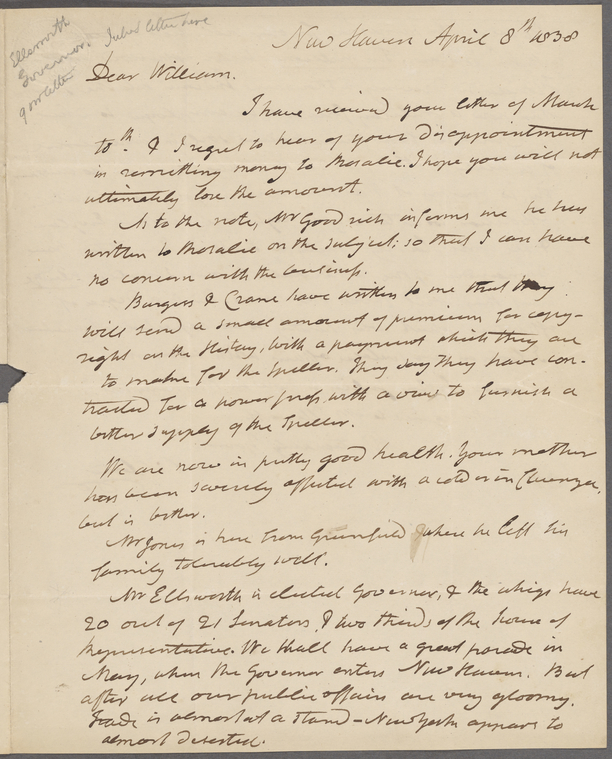 Ellsworth
Governor. Inter letter here
New Haven April 8th 1838
Dear William.
I have received your letter of March
10th. & I regret to hear of your disappointment
in remitting money to Rosalie. I hope you will not
ultimately lose the amount.
As to the note, Mr Goodrich informs me he has
written to Rosalie on the subject; so that I can have
no concern with the business.
Burgess & Crane have written to me that they
will send a small amount of premium for copy-
right on the History, with a payment which they are
to make for the Speller. They say they have con-
tracted for a power press with a view to furnish a
better supply of the Speller.
We are now in pretty good health. Your mother
has been severely affected with a cold or influenza,
but is better.
Mr Jones is here from Greenfield where he left his
family tolerably well.
Mr Ellsworth is elected Governor, & the whigs have
20 out of 21 Senators, & two thirds of the house of
Representatives. We shall have a great parade in
May, when the Governor enters New Haven. But
after all our public affairs are very gloomy.
Trade is almost at a stand – New York appears to
almost deserted.